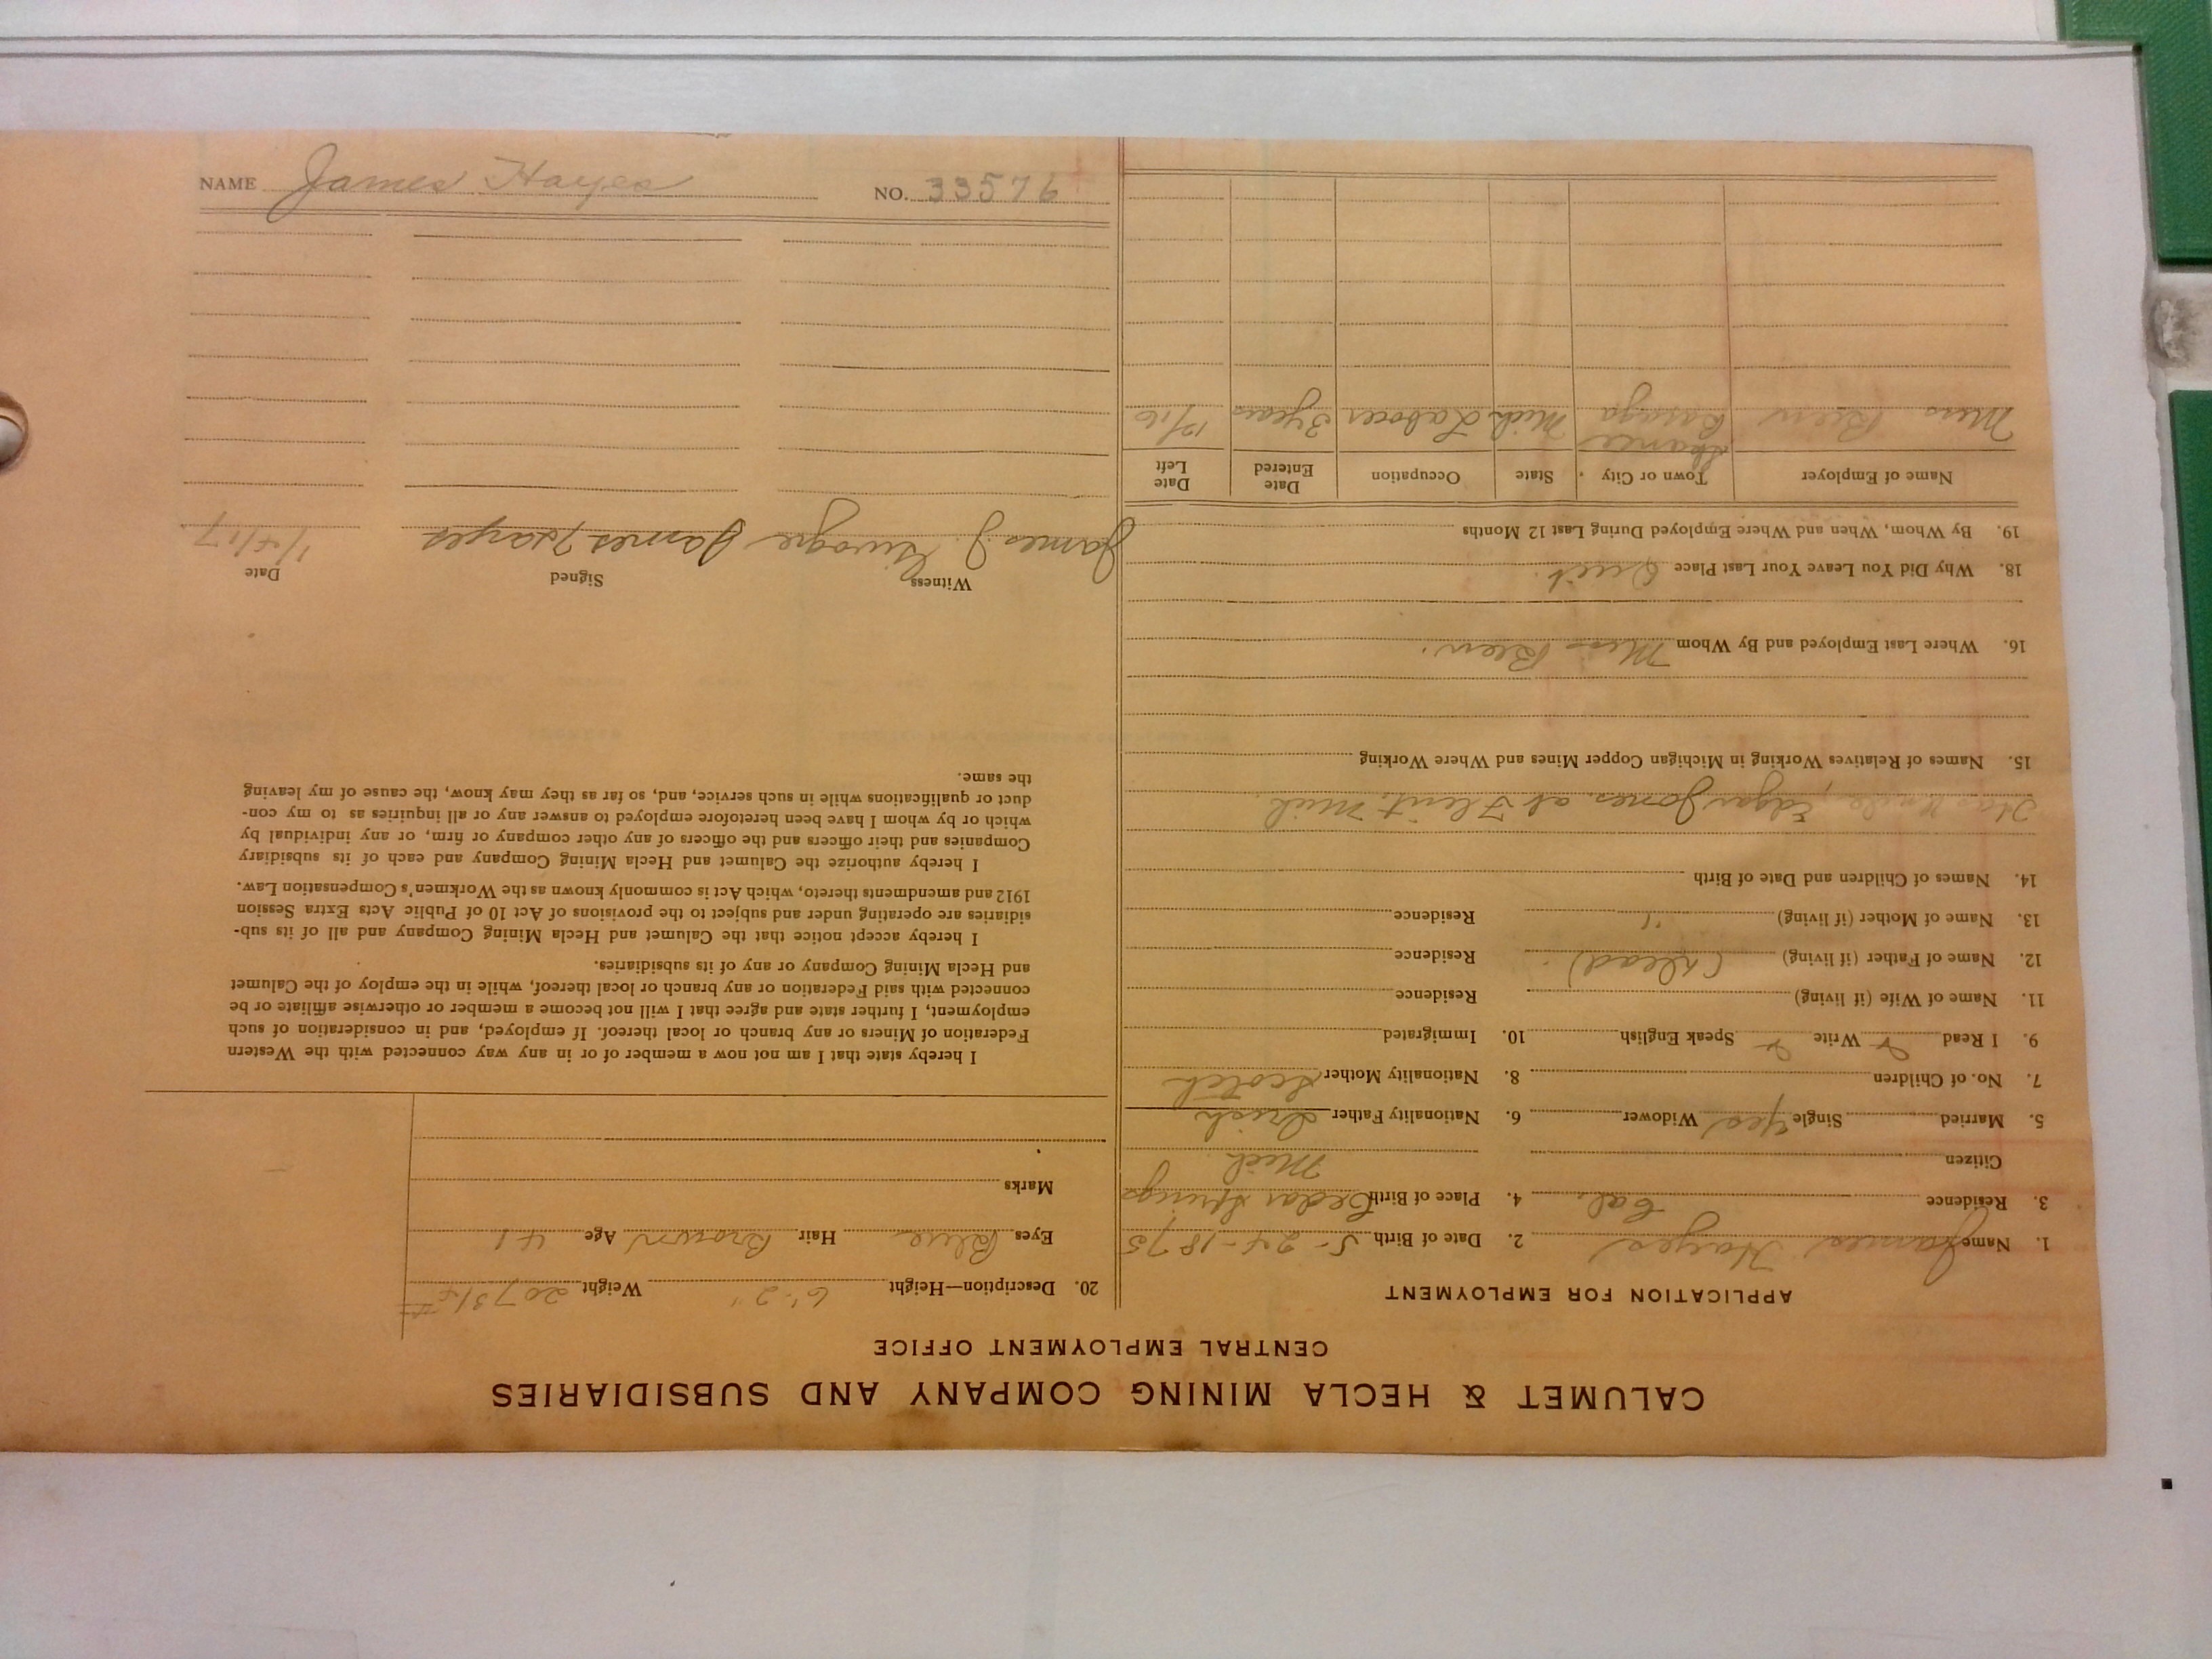 NAME James Hayes NO. 33576
CALUMET & HECLA MINING COMPANY AND SUBSIDIARIES
CENTRAL EMPLOYMENT OFFICE
APPLICATION FOR EMPLOYMENT
1. Name James Hayes 2. Date of Birth 5-24-1875
3. Residence Cal. 4. Place of Birth Cedar Springs
Mich
Citizen
5. Married Single Yes Widower 6. Nationality Father Irish
7. No. of Children 8. Nationality Mother Scotch
9. I Read Write Speak English 10. Immigrated
11. Name of Wife (if living) Residence
12. Name of Father (if living) (Dead) Residence
13. Name of Mother (if living) " Residence
14. Names of Children and Date of Birth
Has Uncle, Edgar Jones. at Flint Mich.
15. Names of Relatives Working in Michigan Copper Mines and Where Working
16. Where Last Employed and By Whom
18. Why Did You Leave Your Last Place Quit.
19. By Whom, When and Where Employed During Last 12 Months
Name of Employer Town or City State Occupation Date Entered Date Left
Mich Laborer 3 years 12/16
20. Description—Height 6'-2" Weight 207 3/4
Eyes Blue Hair Brown Age 41
Marks
I hereby state that I am not now a member of or in any way connected with the Western
Federation of Miners or any branch or local thereof. If employed, and in consideration of such
employment, I further state and agree that I will not become a member or otherwise affiliate or be
connected with said Federation or any branch or local thereof, while in the employ of the Calumet
and Hecla Mining Company or any of its subsidiaries.
I hereby accept notice that the Calumet and Hecla Mining Company and all of its sub-
sidiaries are operating under and subject to the provisions of Act 10 of Public Acts Extra Session
1912 and amendments thereto, which Act is commonly known as the Workmen's Compensation Law.
I hereby authorize the Calumet and Hecla Mining Company and each of its subsidiary
Companies and their officers and the officers of any other company or firm, or any individual by
which or by whom I have been heretofore employed to answer any or all inquiries as to my con-
duct or qualifications while in such service, and, so far as they may know, the cause of my leaving
the same.
Witness Signed Date
James J. James Hayes 1/4/17